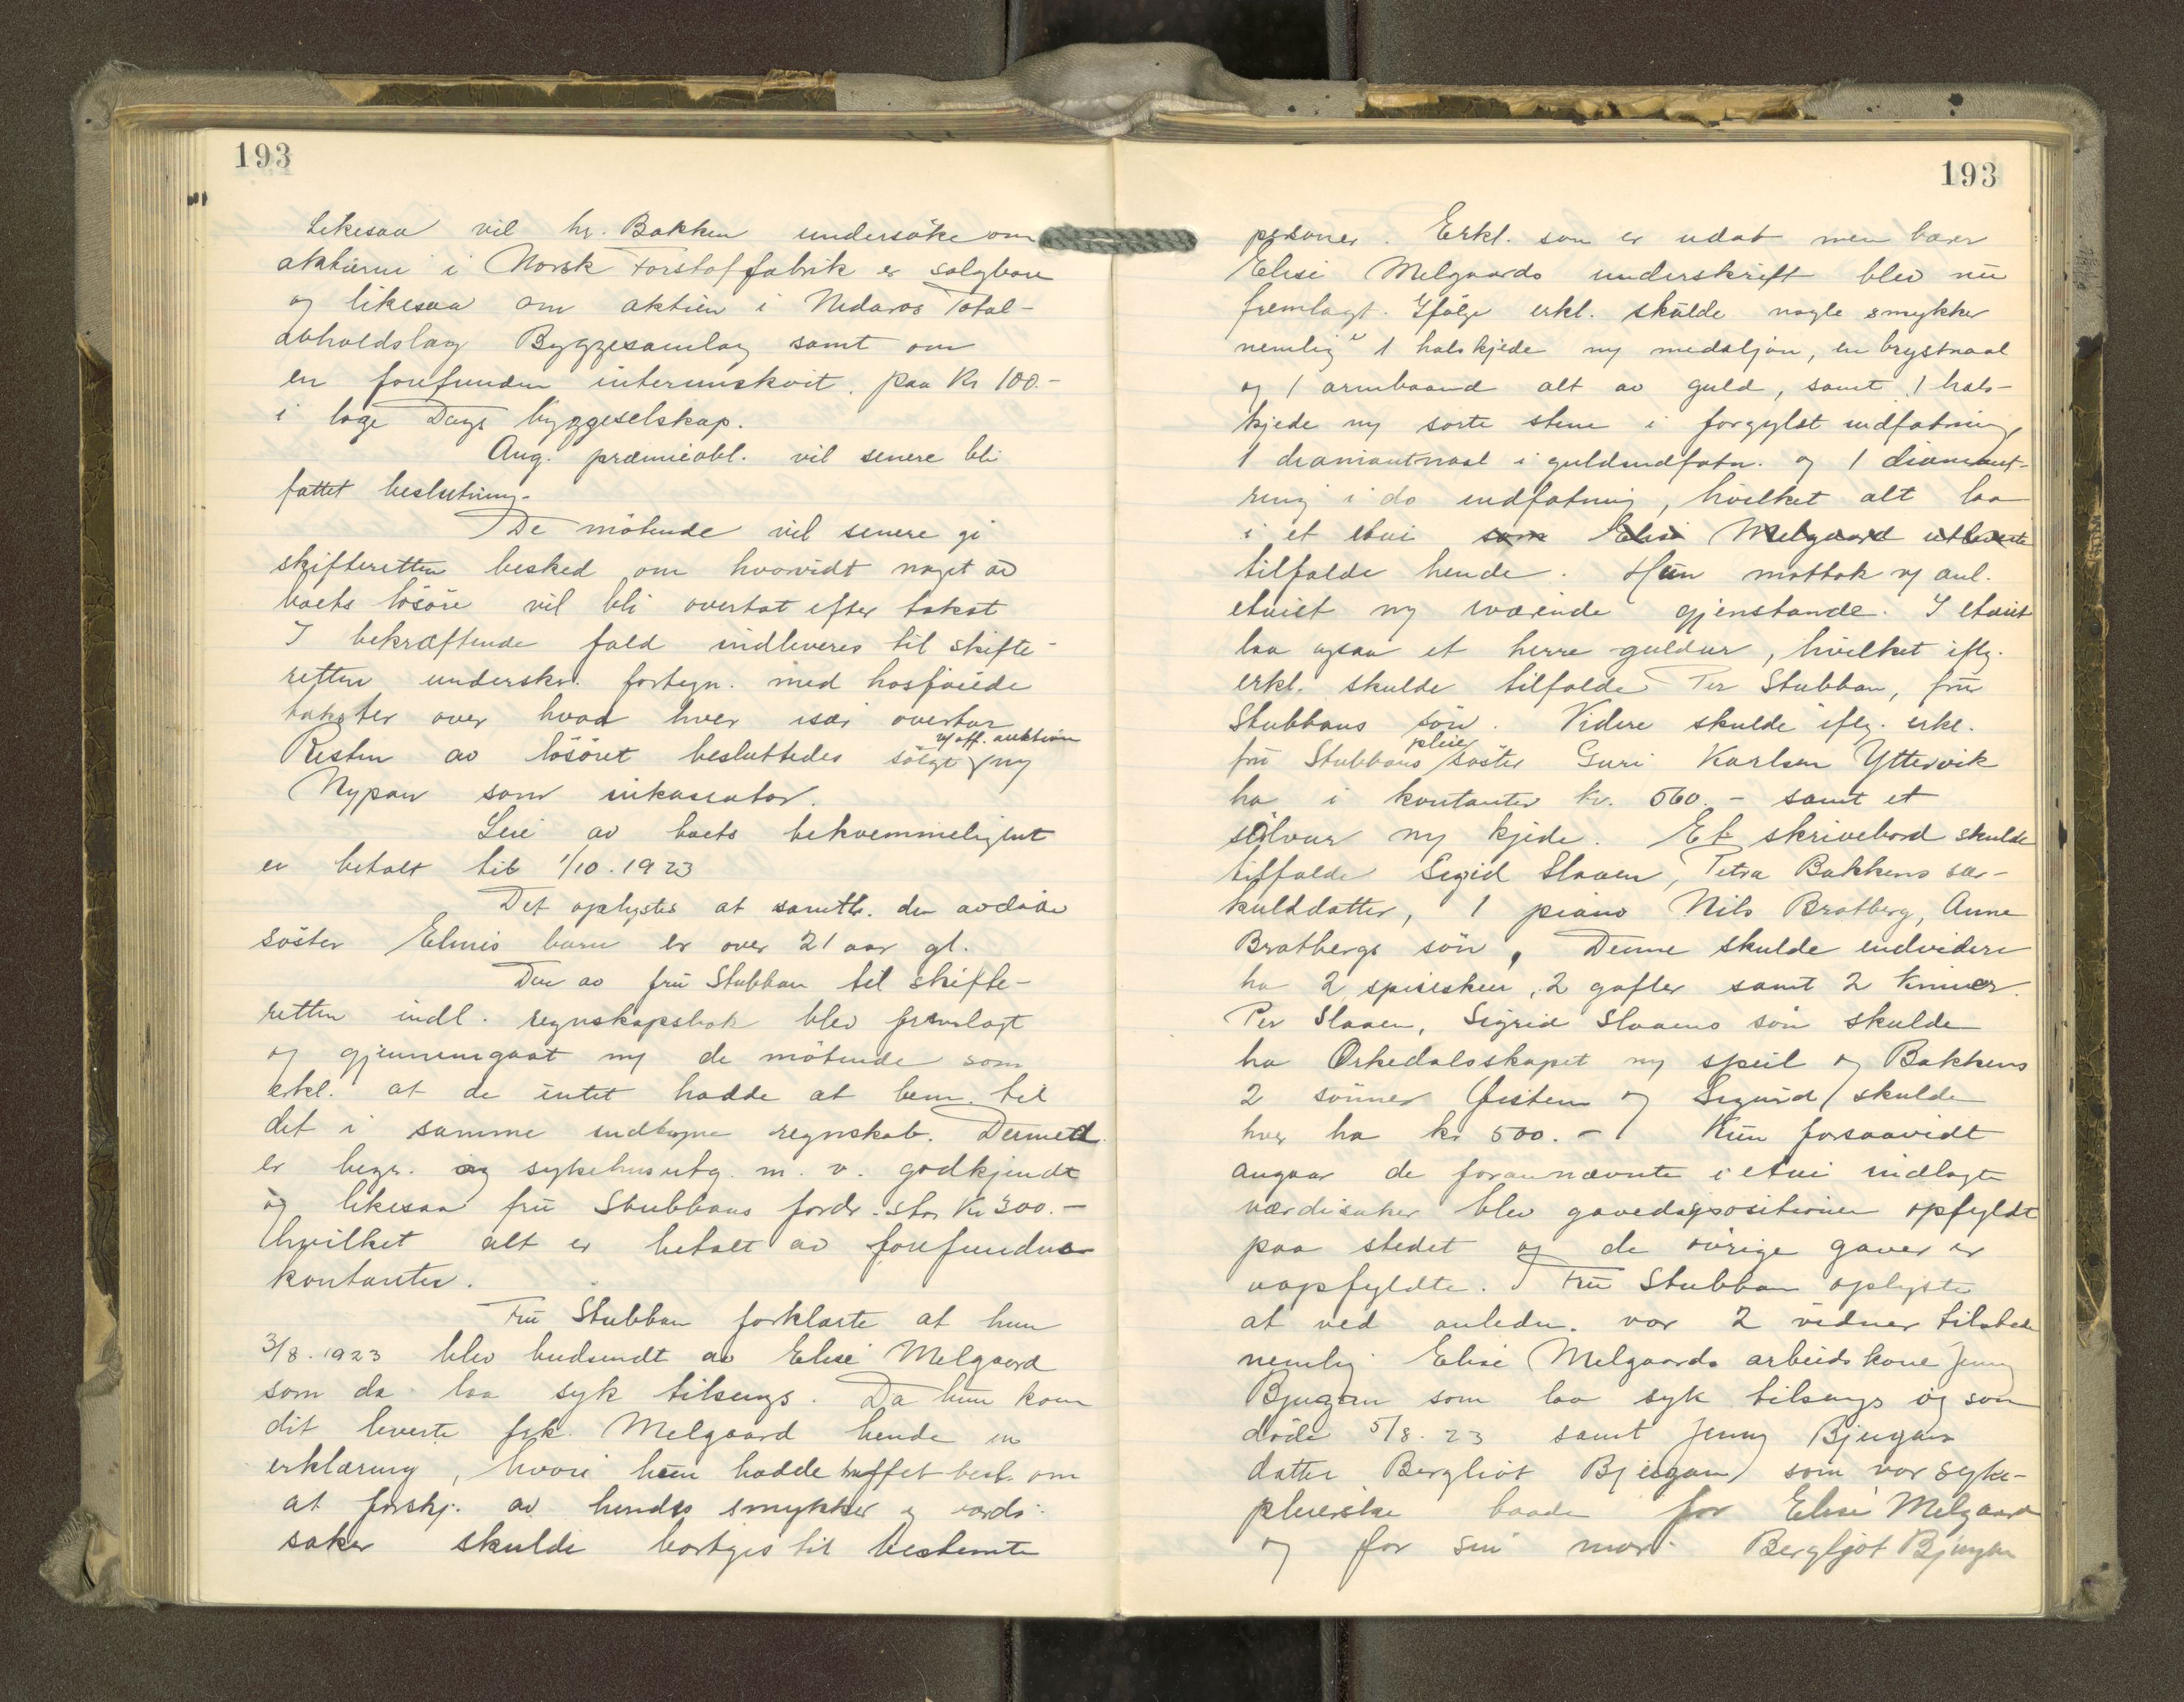 193
Likesaa vil hr. Bakken undersöke om
aktierne i Norsk Forstoffabrik er salgbare
og likesaa om aktien i Nidaros Total-
avholdslag Byggesamlag samt om
en forefunden interimskvit. paa kr 100.-
i loge Dags byggeselskap.
Ang. præmieobl. vil senere bli
fattet beslutning.
De mötende vil senere gi
skifteretten besked om hvorvidt noget av
boets lösöre vil bli overtat efter takst
I bekræftende fald indleveres til skifte-
retten underskr. fortegn. med hosföiede
takster over hvad hver især overtar
Resten av lösöret besluttedes solgt v/ off. auktion m/
Nypan som inkassator.
Leie av boets bekvemmeligheter
er betalt til 1/10.1923
Det oplystes at samtl. den avdöde
söster Elinis barn er over 21 aar gl.
Den av fru Stubban til skifte-
retten indl. regnskapsbok blev fremlagt
og gjennemgaat m/ de mötende som
erkl. at de intet hadde at bem. til
det i samme indtagne regnskab. Dermed
er begr. og sykehusutg. m. v. godkjendt
og likesaa fru Stubbans fordr. stor kr 300.-
hvilket alt er betalt av forefundne
kontanter.
Fru Stubban forklarte at hun
3/8.1923 blev budsendt av Elise Melgaard
som da laa syk tilsengs. Da hun kom
dit leverte frk. Melgaard hende en
erklæring, hvori hun hadde truffet best. om
at forskj. av hendes smykker og værdi-
saker skulde bortgis til bestemte
193
personer. Erkl. som er udat. men bærer
Elise Melgaards underskrift blev nu
fremlagt. Ifölge erkl. skulde nogle smykker
nemlig 1 halskjede m/ medaljon, en brystnaal
og 1 armbaand alt av guld, samt 1 hals-
kjede m/ sorte stene i forgyldt indfatning
1 diamantnaal i guldindfatn. og 1 diamant-
ring i do indfatning, hvilket alt laa
i et etui som Elise Melgaard utleverte
tilfalde hende. Hun mottok v/ anl.
etuiet m/ iværende gjenstande. I etuiet
laa ogsaa et herre-guldur, hvilket iflg.
erkl. skulde tilfalde Per Stubban, fru
Stubbans sön. Videre skulde iflg. erkl.
fru Stubbans pleiesöster Guri Karlsen Yttervik
ha i kontanter kr. 500.- samt et
sölvur m/ kjede. Et skrivebord skulde
tilfalde Sigrid Slaaen, Petra Bakkens sær-
kulddatter, 1 piano Nils Bratberg, Anne
Bratbergs sön, Denne skulde endvidere
ha 2 spiseskeer, 2 gafler samt 2 kniver.
Per Slaaen, Sigrid Slaaens sön skulde
ha Orkedalsskapet m/ speil og Bakkens
2 sönner Öistein og Sigurd skulde
hver ha kr 500.- Kun forsaavidt
angaar de forannævnte i etui indlagte
værdisaker blev gavedispositionen opfyldt
paa stedet og de övrige gaver er
uopfyldte. Fru Stubban oplyste
at ved anledn. var 2 vidner tilstede
nemlig Elise Melgaards arbeidskone Jenny
Bjugan som laa syk tilsengs og som
döde 5/8.23 samt Jenny Bjugans
datter Bergliot Bjugan som var syke-
pleierske baade for Elise Melgaard
og for sin mor. Bergljot Bjugan